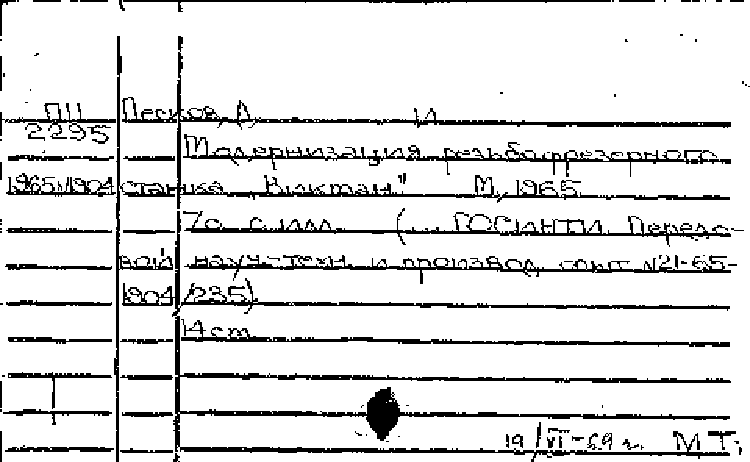 ПII Песков, А И
2295
Модернизация резьбофрезерного
1965/1904 станка „Виктан" М, 1965
7с с илл. (... ГОСИНТИ. Передо-
вой науч.-техн. и производ. опыт №21-65-
1904/235)
14 cm
19/VI-69 г. М Т.